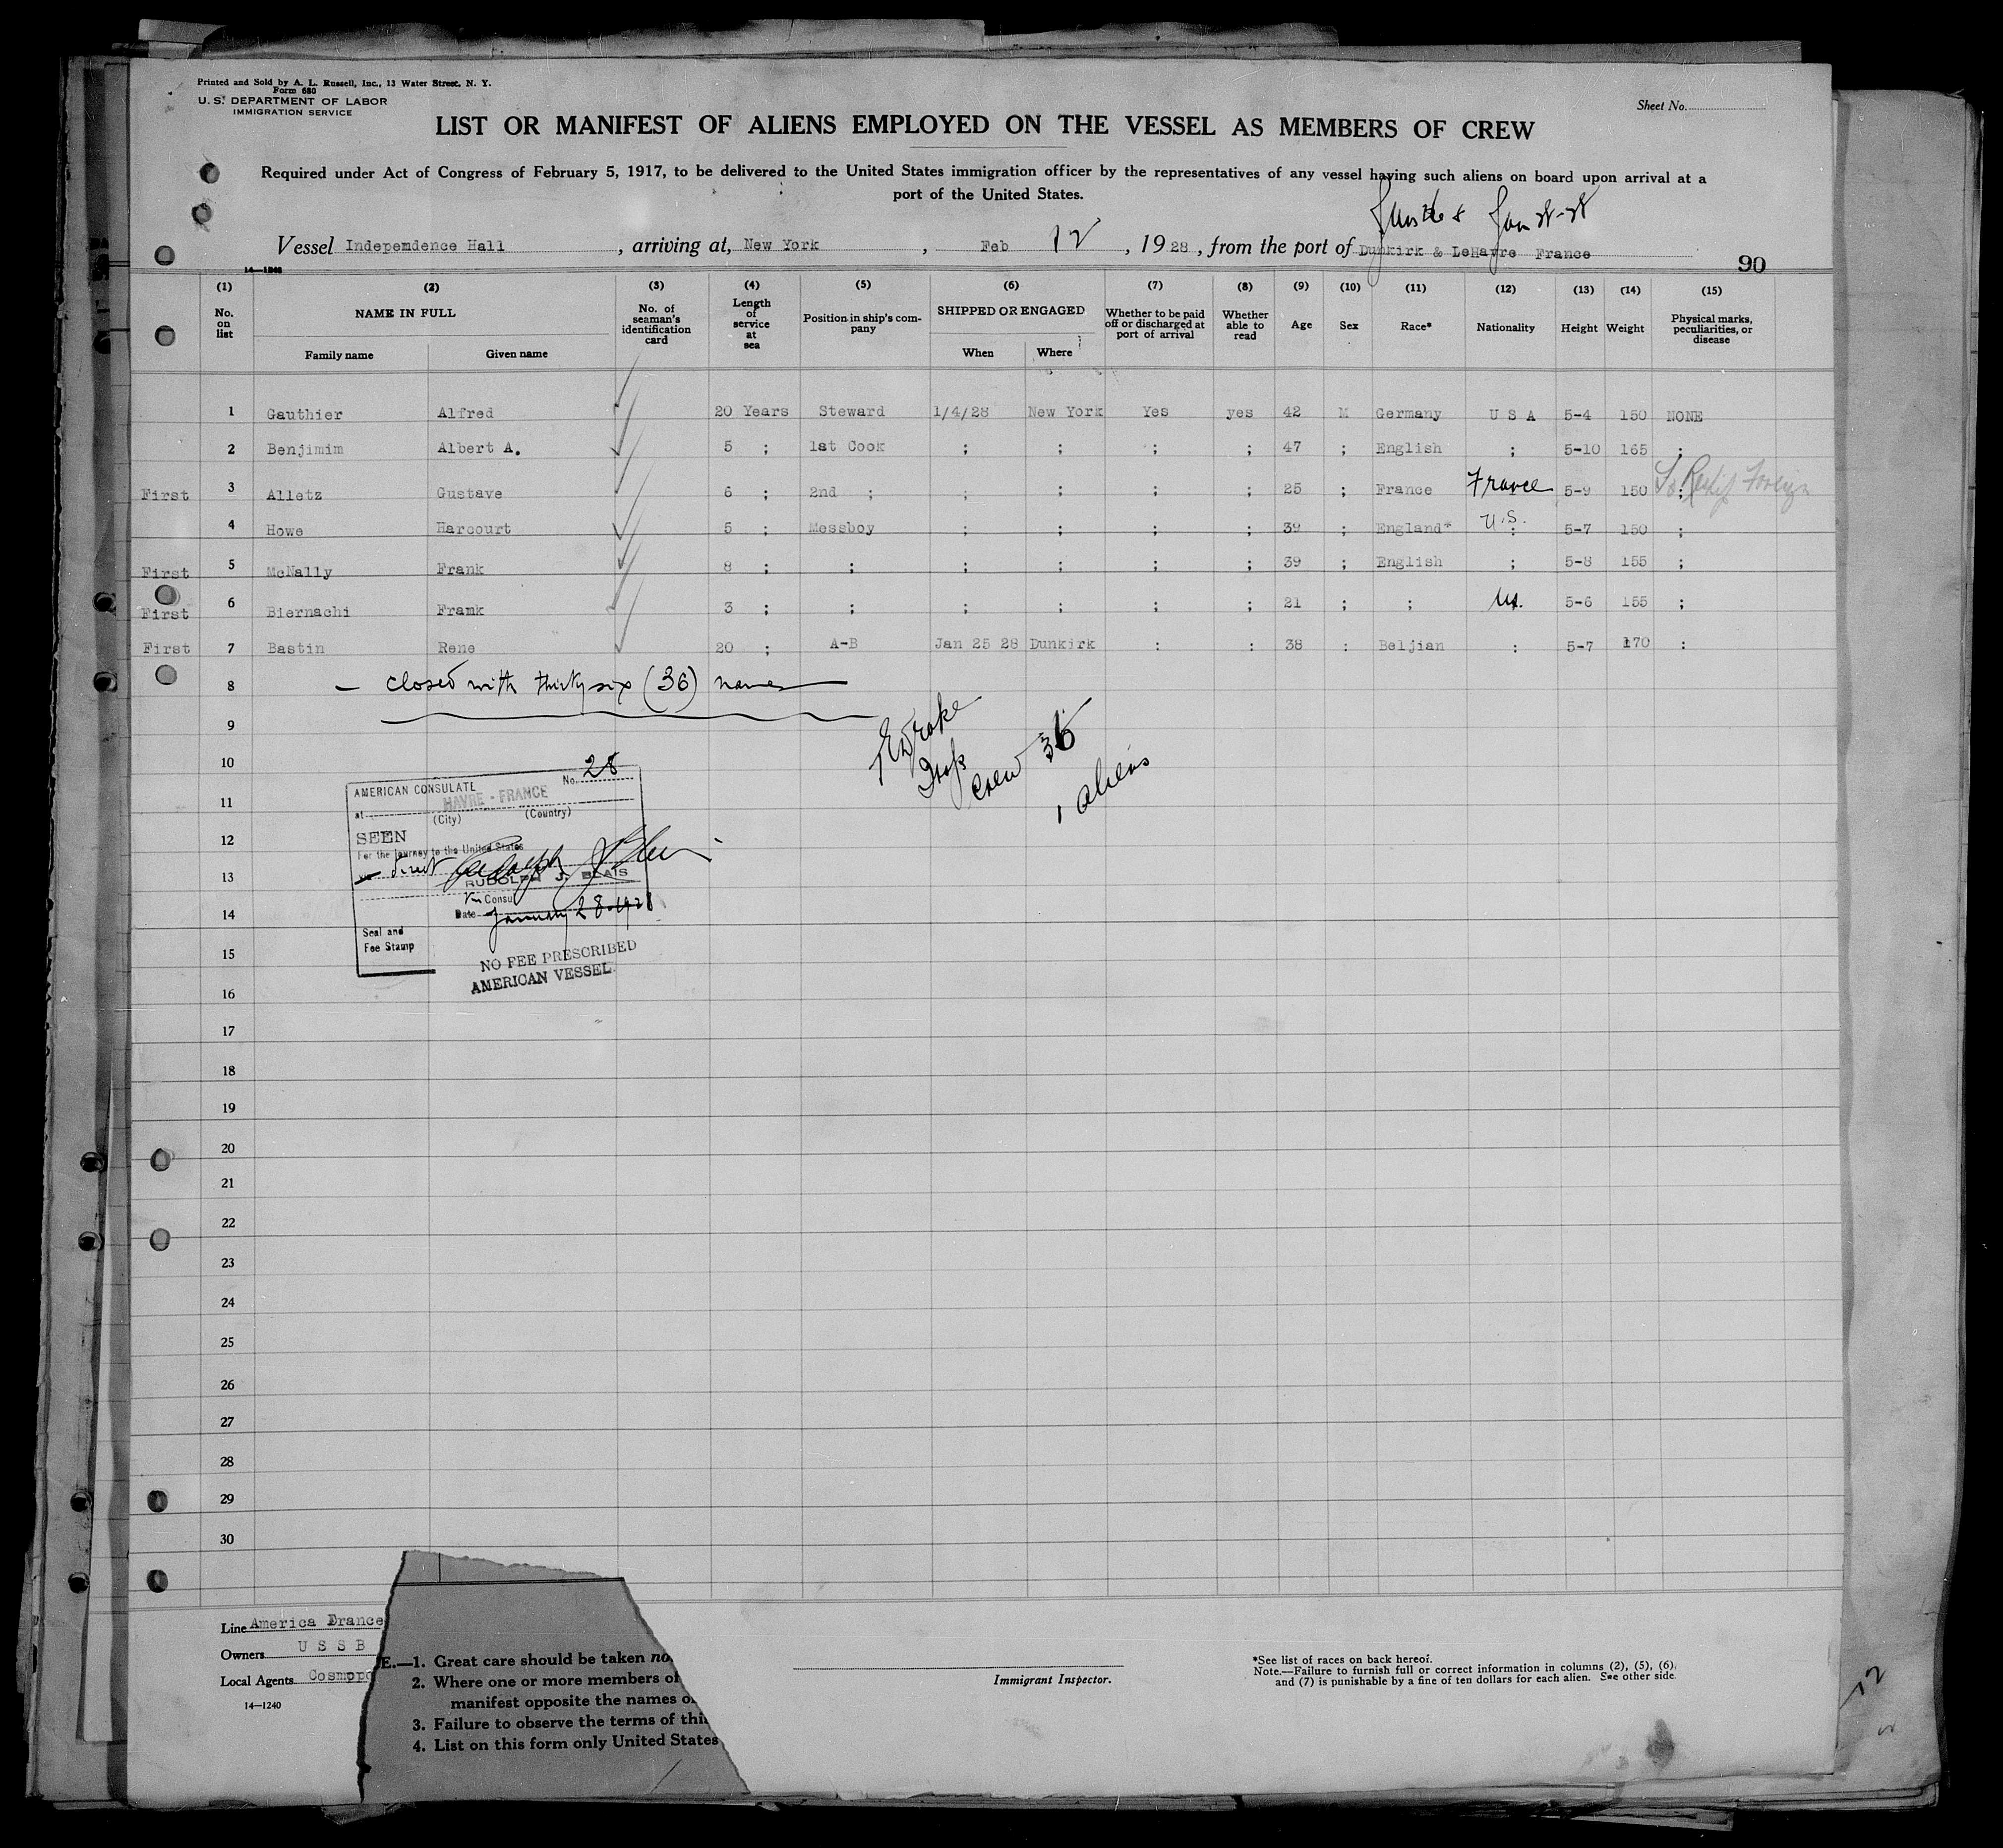 Printed and Sold by A. L. Russell, Inc., 13 Water Street, N. Y.
Form 680
U. S. DEPARTMENT OF LABOR
IMMIGRATION SERVICE
Sheet No.
LIST OR MANIFEST OF ALIENS EMPLOYED ON THE VESSEL AS MEMBERS OF CREW
Required under Act of Congress of February 5, 1917, to be delivered to the United States immigration officer by the representatives of any vessel having such aliens on board upon arrival at a
port of the United States.
Vessel Independence Hall, arriving at, New York, Feb 12, 1928, from the port of Dunkirk & LeHavre France
14—1240
90
(1) (2) (3) (4) (5) (6) (7) (8) (9) (10) (11) (12) (13) (14) (15)
No. on list NAME IN FULL Family name Given name No. of seaman's identification card Length of service at sea Position in ship's company SHIPPED OR ENGAGED When Where Whether to be paid off or discharged at port of arrival Whether able to read Age Sex Race* Nationality Height Weight Physical marks, peculiarities, or disease
1 Gauthier Alfred 20 Years Steward 1/4/28 New York Yes yes 42 M Germany U S A 5-4 150 NONE
2 Benjimim Albert A. 5 ; 1st Cook ; ; ; ; 47 ; English ; 5-10 165 ;
First 3 Alletz Gustave 6 ; 2nd ; ; ; ; ; 25 ; France France 5-9 150 ; Foreign
4 Howe Harcourt 5 ; Messboy ; ; ; ; 39 ; England* U.S. ; 5-7 150 ;
First 5 McNally Frank 8 ; ; ; ; ; ; 39 ; English ; 5-8 155 ;
First 6 Biernachi Framk 3 ; ; ; ; ; ; 21 ; ; 5-6 155 ;
First 7 Bastin Rene 20 ; A-B Jan 25 28 Dunkirk : : 38 : Beljian : 5-7 170 :
8 — closed with thirty six (36) names
9
10
11
12
13
14
15
16
17
18
19
20
21
22
23
24
25
26
27
28
29
30
Crew 36
1 aliens
AMERICAN CONSULATE No. 28
at HAVRE - FRANCE
(City) (Country)
SEEN
For the journey to the United States
direct
RUDOLPH J. BLAIS
Consul
Date January 28-1928
Seal and
Fee Stamp
NO FEE PRESCRIBED
AMERICAN VESSEL
Line America France
Owners U S S B
Local Agents Cosmopo
14—1240
E.—1. Great care should be taken no
2. Where one or more members of
manifest opposite the names o
3. Failure to observe the terms of thi
4. List on this form only United States
Immigrant Inspector.
*See list of races on back hereof.
Note.—Failure to furnish full or correct information in columns (2), (5), (6),
and (7) is punishable by a fine of ten dollars for each alien. See other side.
12